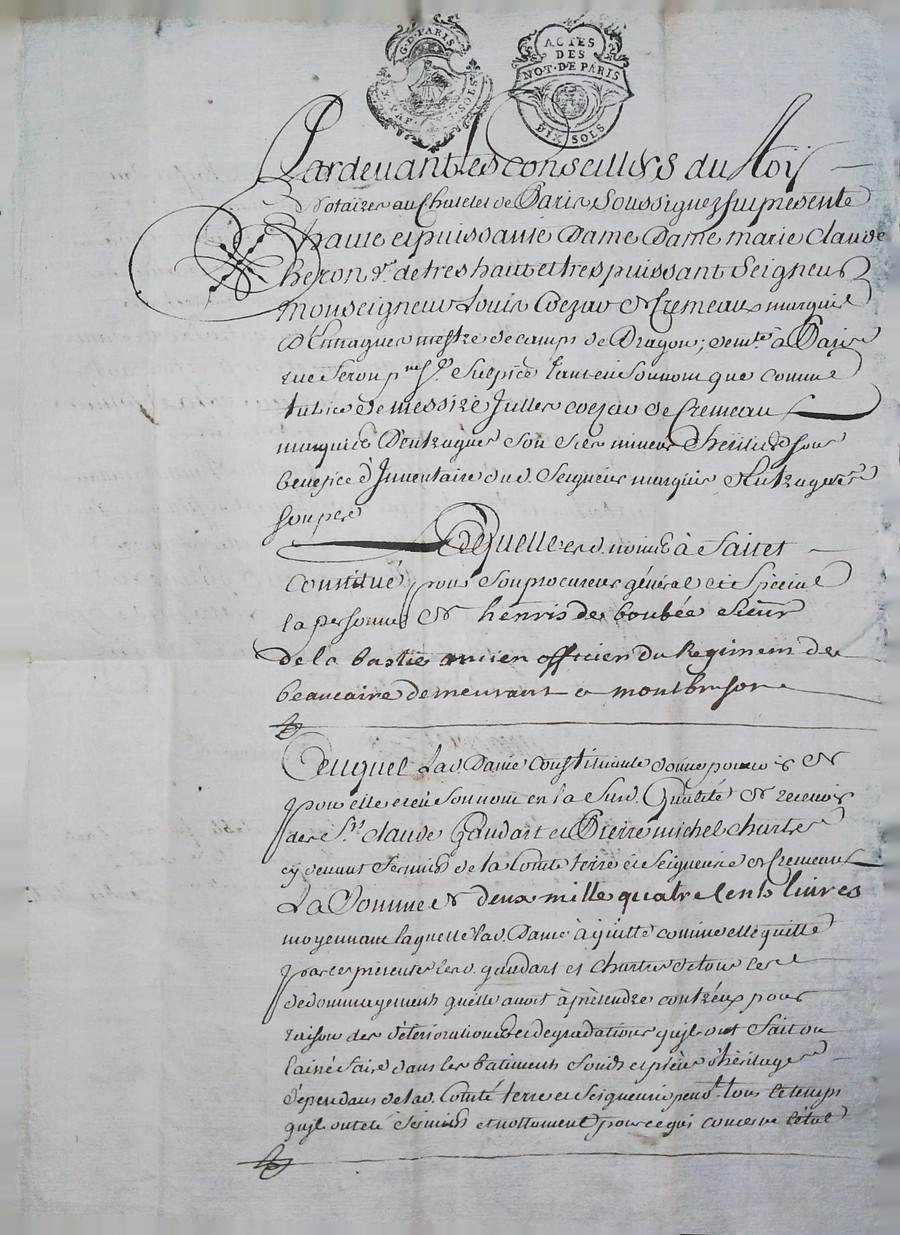 G. D. PARIS
SOLS
ACTES
DES
NOT. DE PARIS
DIX SOLS
Pardevant les Conseillers du Roy
Notaires au Chatelet de Paris Soussignez fut presente
haute et puissante Dame Dame marie Claude
heron v.e de tres haut et tres puissant Seigneur
monseigneur Louis Cezar de Cremeaux marquis
D'Entragues mestre de camps de Dragons; dem.te à Paris
rue feron p.sse S.t Sulpice tant en Son nom que comme
tutrice de messire Julles cezar de Cremeau
marquis D'entragues Son fils mineur heritier sous
benefice d'Inventaire dud. Seigneur marquis d'Entragues
son pere
Laquelle esd. noms à fait et
constitué pour Son procureur général et Special
la personne de henris de boubée Sieur
de la bastie ancien officier du Regiment de
beaucaire demeurant a montbrison
Auquel lad. Dame Constituante donne pouvoir de
pour elle et en Son nom en la Susd. Qualité de recevoir
des S.rs claude Gaudart et Pierre michel chartre
cy devant fermiers de la Comté terre et Seigneurie de Cremeaux
La Somme de deux mille quatre Cents livres
moyennant laquelle lad. Dame à quitté comme elle quitte
par ces presentes lesd. gaudart et chartre de tous les
dedommagements quelle avoit à prétendre contr'eux pour
raison des déteriorations et degradations quils ont fait ou
laissé faire dans les batiments fonds et d'héritages
dépendans de lad. Comté terre et Seigneurie pend.t tous le temps
quils ont été fermiers et nottament pour ce qui concerne l'état